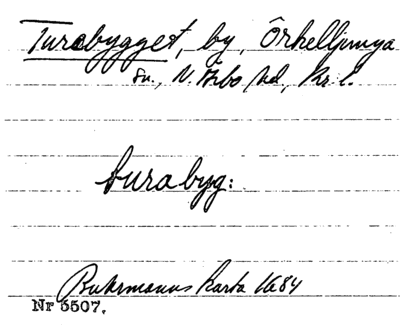 Turebygget, by, Örkelljunga
sn., N. Åsbo hd, Kr. l.
Turabyg:
Buhrmanns karta 1684
Nr 5507.